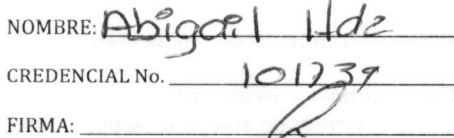 NOMBRE: Abigail Hdz
CREDENCIAL No. 101739
FIRMA: